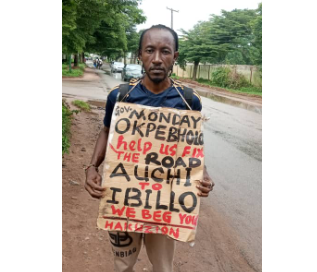 GOV. MONDAY
OKPEBHOLO
help us FIX
THE ROAD
AUCHI
TO
IBILLO
WE BEG YOU